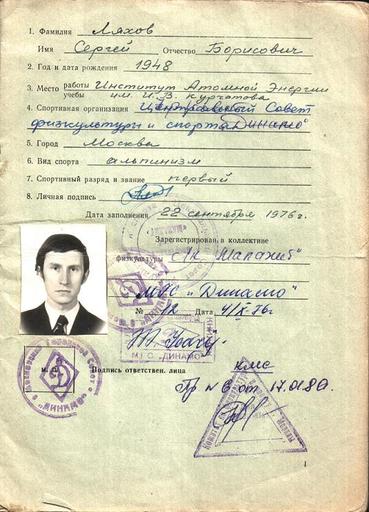 1. Фамилия Ляхов
Имя Сергей Отчество Борисович
2. Год и дата рождения 1948
3. Место работы учебы Институт Атомной Энергии
им. И.В. Курчатова
4. Спортивная организация Центральный Совет
физкультуры и спорта "Динамо"
5. Город Москва
6. Вид спорта альпинизм
7. Спортивный разряд и звание первый
8. Личная подпись
Дата заполнения 22 сентября 1976 г.
Зарегистрирован в коллективе
физкультуры
МГС "Динамо"
№ 12 Дата 4/X-76г
М.Г.С. "ДИНАМО"
М. П. Подпись ответствен. лица
"ДИНАМО"
КМС
Пр № 6 от 17.01.80.
1